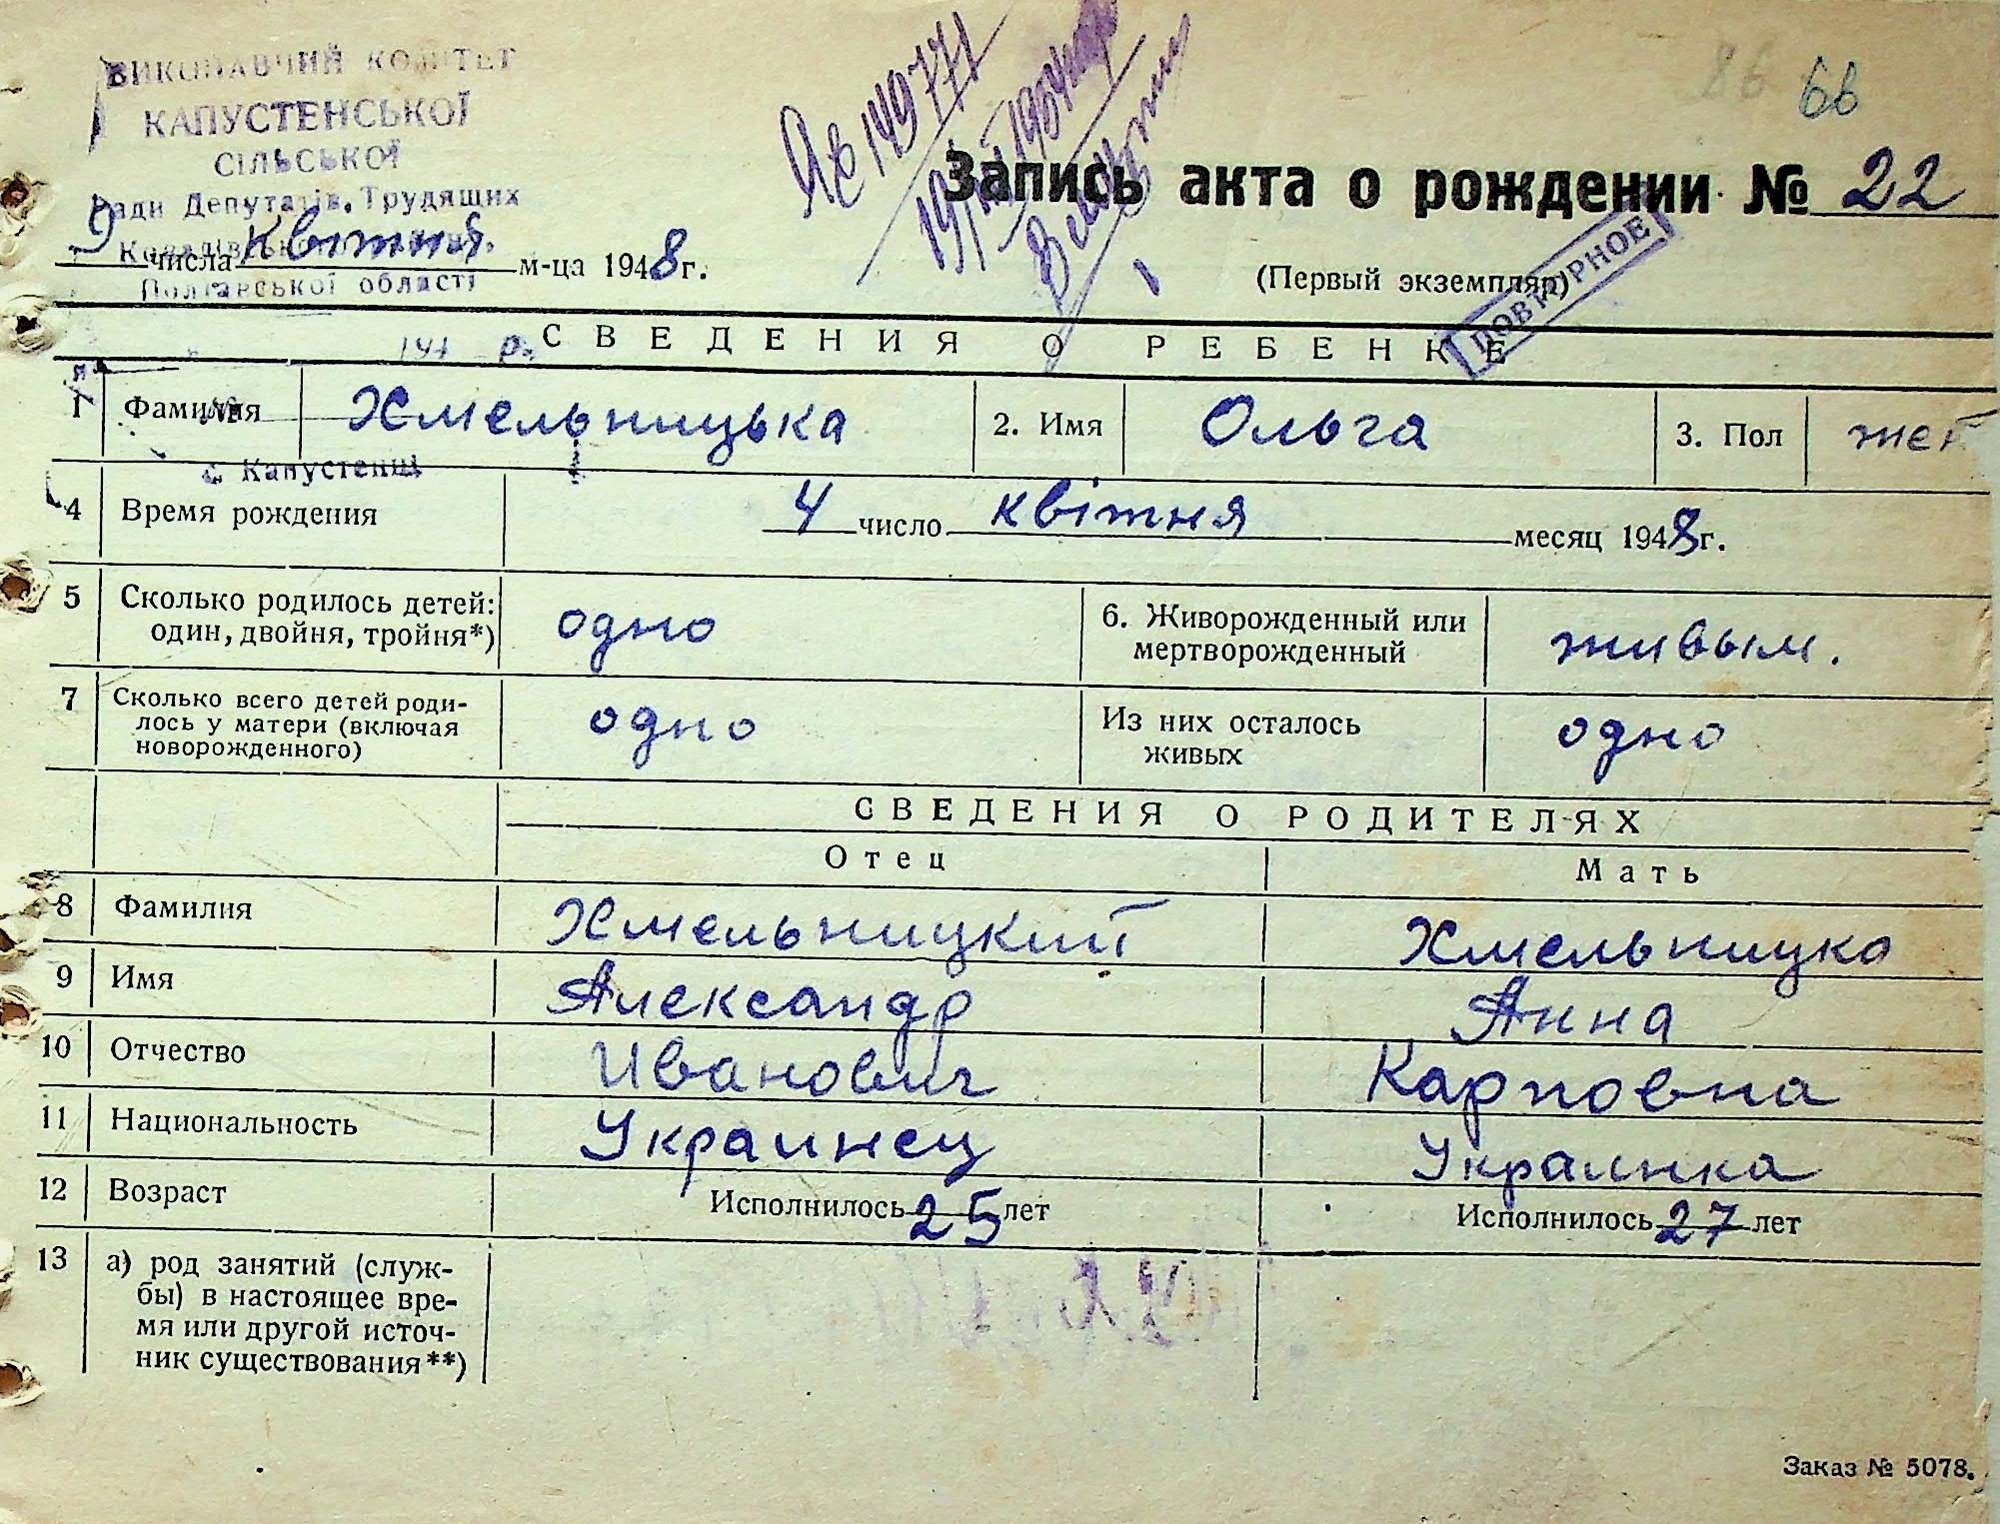 ВИКОНАВЧИЙ КОМІТЕТ
КАПУСТЕНСЬКОЇ
СІЛЬСЬКОЇ
Ради Депутатів Трудящих
Полтавської області
с. Капустенці
ЯЕ 149771
66
Запись акта о рождении № 22
9 числа квітня м-ца 1948 г.
(Первый экземпляр)
ПОВТОРНОЕ
СВЕДЕНИЯ О РЕБЕНКЕ
1 Фамилия Хмельницька 2. Имя Ольга 3. Пол жен
4 Время рождения 4 число квітня месяц 1948 г.
5 Сколько родилось детей: один, двойня, тройня*) одно 6. Живорожденный или мертворожденный живым.
7 Сколько всего детей родилось у матери (включая новорожденного) одно Из них осталось живых одно
СВЕДЕНИЯ О РОДИТЕЛЯХ
Отец Мать
8 Фамилия Хмельницкий Хмельницка
9 Имя Александр Анна
10 Отчество Иванович Карповна
11 Национальность Украинец Украинка
12 Возраст Исполнилось 25 лет Исполнилось 27 лет
13 а) род занятий (служ-
бы) в настоящее вре-
мя или другой источ-
ник существования**)
Заказ № 5078.